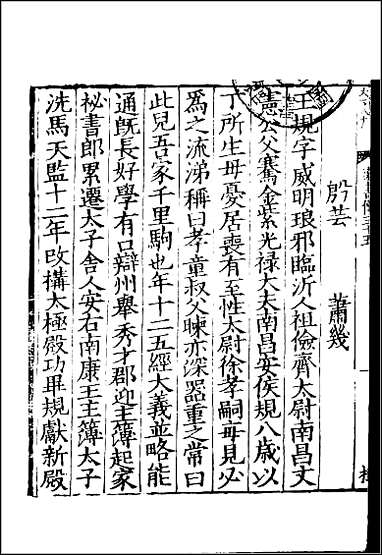 殷芸　蕭幾
王規字威明琅邪臨沂人祖儉齊太尉南昌文
憲公父騫金紫光祿大夫南昌安侯規八歲以
丁所生母憂居喪有至性太尉徐孝嗣每見必
爲之流涕稱曰孝童叔父暕亦深器重之常曰
此兒吾家千里駒也年十二五經大義並略能
通旣長好學有口辯州舉秀才郡迎主簿起家
祕書郎累遷太子舍人安右南康王主簿太子
洗馬天監十二年改搆太極殿功畢規獻新殿